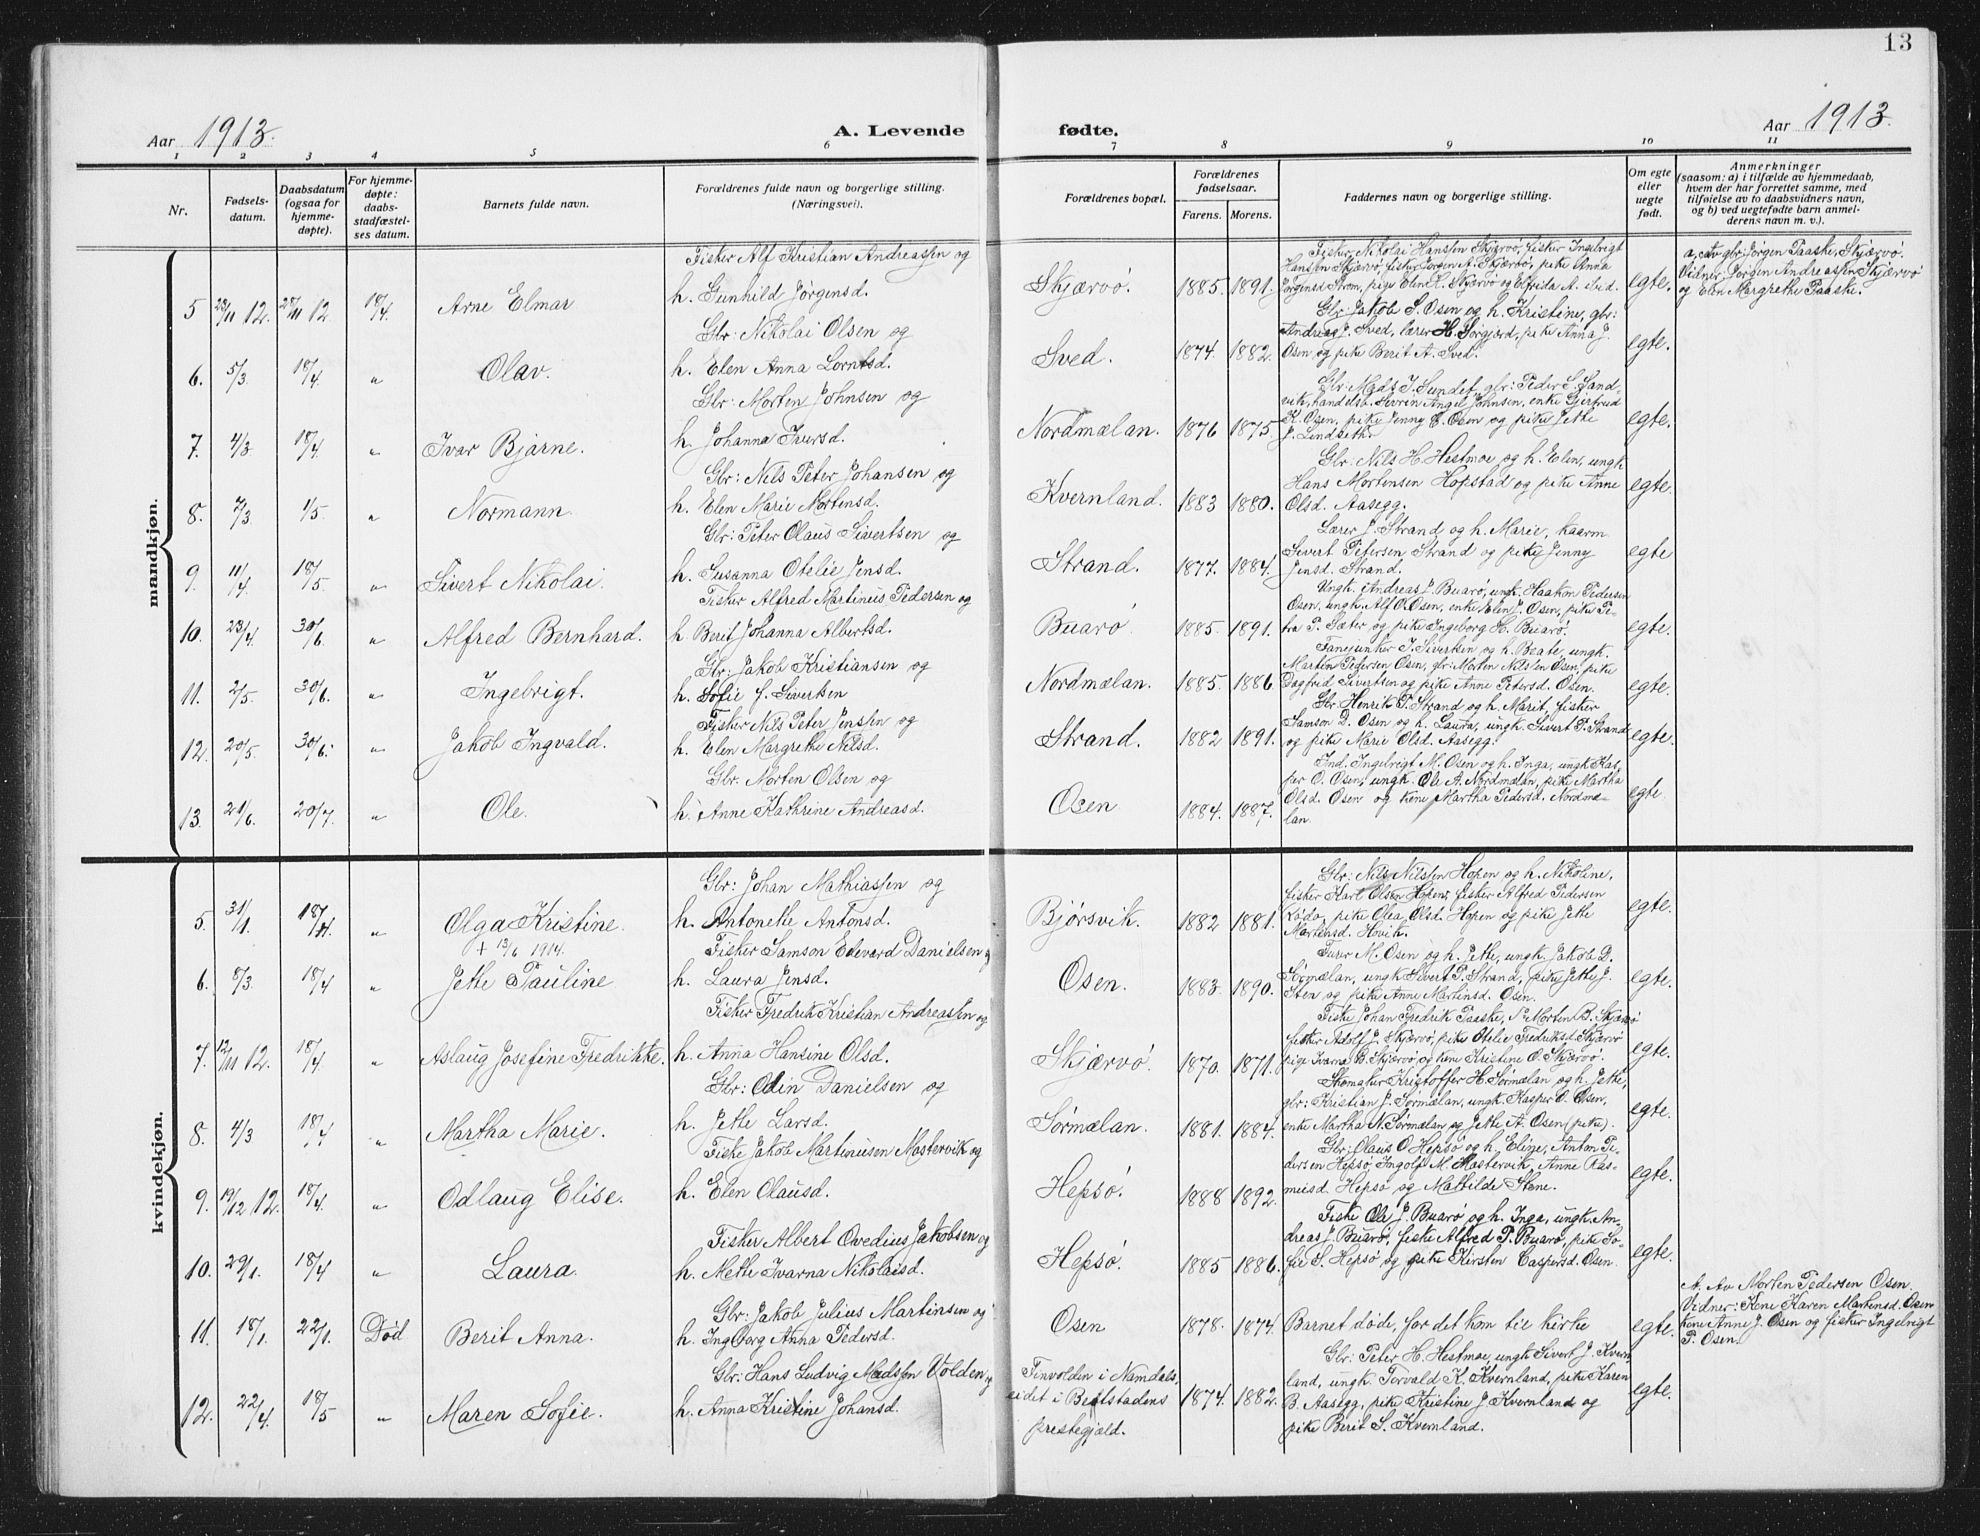 13
Aar 1913.
A. Levende fødte.
Aar 1913.
1 2 3 4 5 6 7 8 9 10 11
Nr.
Fødsels-
datum.
Daabsdatum
(ogsaa for
hjemme-
døpte).
For hjemme-
døpte:
daabs-
stadfæstel-
ses datum.
Barnets fulde navn.
Forældrenes fulde navn og borgerlige stilling.
(Næringsvei).
Forældrenes bopæl.
Forældrenes
fødselsaar.
Farens. Morens.
Faddernes navn og borgerlige stilling.
Om egte
eller
uegte
født.
Anmerkninger
(saasom: a) i tilfælde av hjemmedaab,
hvem der har forrettet samme, med
tilføielse av to daabsvidners navn,
og b) ved uegtefødte barn anmel-
derens navn m. v.).
mandkjøn.
5 23/11 12. 28/11 12 18/4. Arne Elmar
Fisker Alf Kristian Andreassen og
h. Gunhild Jørgensd.
Skjærvö. 1885. 1891.
Fisker Nikolai Hansen Skjærvö, fisker Ingebrigt
Hansen Skjærvö, fisker Jørgen A. Skjærvö, pike Anna
Jørgensd Strøm, pige Elen K. Skjærvö og Elfrida A. Sved.
egte.
a, av gbr. Jørgen Paaske, Skjærvö.
Vidner: Jørgen Andreassen Skjærvö
og Elen Margrethe Paaske.
6. 5/3 18/4 " Olav.
Gbr: Nikolai Olsen og
h. Elen Anna Lorntsd.
Sved. 1874. 1882.
Gbr: Jakob S. Osen og h. Kristine, gbr:
Andreas J. Sved, lærer H. Sørgjerd, pike Anna J.
Osen og pike Berit A. Sved.
egte.
7. 4/3 18/4 " Ivar Bjarne.
Gbr: Morten Johnsen og
h. Johanna Iversd.
Nordmælan. 1876 1875
Gbr: Mads J. Sundet, gbr: Peder S. Sand-
vik, handelsb. Severin Angel Johnsen, enke Gjertrud
K. Osen, pike Jenny E. Osen og pike Jette
J. Lindseth.
egte.
8. 7/3 1/5 " Normann.
Gbr: Nils Peter Johansen og
h. Elen Marie Mortensd.
Kvernland. 1883 1880.
Gbr: Nils H. Hestmoe og h. Elen, ungk
Hans Mortensen Hopstad og pike Anne
Olsd. Aasegg.
egte.
9 11/4 18/5 " Sivert Nikolai.
Gbr: Peter Olaus Sivertsen og
h. Susanna Otelie Jensd.
Strand. 1877. 1884.
Lærer J. Strand og h. Marie, kaarm
Sivert Petersen Strand og pike Jenny
Jensd. Strand.
egte
10. 23/4 30/6 " Alfred Bernhard.
Fisker Alfred Martineus Pedersen og
h. Berit Johanna Albertsd.
Buarö. 1885. 1891.
Ungk. Andreas J. Buarö, ungk. Haakon Pedersen
Osen, ungk. Alf O. Osen, enke Elen J. Osen, pike Pe-
tra P. Sæter og pike Ingeborg H. Buarö.
egte.
11. 2/5 30/6. " Ingebrigt.
Gbr: Jakob Kristiansen og
h. Sofie J. Sivertsen
Nordmælan. 1885. 1886.
Fanejunker J. Sivertsen og h. Beate, ungk.
Martin Pedersen Osen, gbr: Morten Nilssen Osen, pike
Dagfrid Sivertsen og pike Anne Petersd. Osen.
egte.
12. 20/5. 30/6. " Jakob Ingvald.
Fisker Nils Peter Jenssen og
h. Elen Margrethe Nilsd.
Strand. 1882 1891.
Gbr Henrik P. Strand og h. Marit, fisker
Samson D. Osen og h. Laura, ungk. Sivert P. Strand
og pike Marie Olsd. Aasegg.
egte.
13. 21/6. 20/7. " Ole.
Gbr. Morten Olsen og
h. Anne Kathrine Andreasd.
Osen 1884. 1887.
Ind. Ingebrigt M. Osen og h. Inga, ungk Kas-
per O. Osen, ungk. Ole A. Nordmælan, pike Martha
Olsd. Osen og kone Martha Pedersd. Nordmæ-
lan.
egte.
kvindekjøn.
5. 31/1. 18/4. " Olga Kristine.
+ 13/6 1914.
Gbr: Johan Mathiassen og
h. Antonethe Antonsd.
Bjørsvik. 1882 1881.
Gbr: Nils Nilssen Hopen og h. Nikoline,
fisker Karl Olsen Hopen, fisker Alfred Pedersen
pike Olea Olsd. Hopen og pike Jette
Martensd. Hovik.
egte.
6. 8/3. 18/4 " Jette Pauline
Fisker Samson Edevard Danielsen og
h. Laura Jensd.
Osen. 1883. 1890.
Furer M. Osen og h. Jette, ungk. Jakob D.
Sørmælan, ungk Sivert P. Strand, pike Jette J.
Sten og pike Anne Martinsd. Osen.
egte.
7. 12/11 12. 18/4. " Aslaug Josefine Fredrikke.
Fisker Fredrik Kristian Andreassen og
h. Anna Hansine Olsd.
Skjærvö. 1870. 1871.
Fiske Johan Fredrik Paaske, Morten B. Skjærvö
fisker Adolf J. Skjærvö, pike Otelie Fredriksd Skjærvö
pige Ivarna B. Skjærvö, og kone Kristine O. Skjærvö.
egte.
8. 4/3 18/4 " Martha Marie.
Gbr: Odin Danielsen og
h. Jette Larsd.
Sørmælan. 1881. 1884.
Skomaker Kristoffer H. Sørmælan og h. Jette,
gbr: Kristian J. Sørmælan, ungk Kasper O. Osen,
enke Martha N. Sørmælan og Jette A. Osen (pike).
egte.
9. 19/12 12. 18/4. " Odlaug Elise.
Fiske Jakob Martinusen Mostervik og
h. Elen Olausd.
Hepsö. 1888 1892.
Gbr: Olaus O Hepsö og h. Eline, Anton Pe-
dersen Hepsö, Ingolf M. Mostervik, Anne Ras-
musd. Hepsö og Mathilde Stene.
egte.
10. 29/1. 18/4 " Laura.
Fisker Albert Ovedius Jakobsen og
h. Mette Ivarna Nikolaisd.
Hepsö. 1885 1886.
Fiske Ole J. Buarö og h. Inga, ungk An-
dreas J. Buarö, fiske Alfred P. Buarö, pike So-
fie S. Hepsö og pike Kirsten Caspersd. Osen.
egte.
11. 18/1. 22/1. Död Berit Anna.
Gbr: Jakob Julius Martinsen og
h. Ingborg Anna Pedersd.
Osen 1878. 1874.
Barnet døde, før det kom til kirke
egte.
A. Av Morten Pedersen Osen
Vidner: Kone Karen Martensd. Osen
kone Anne J. Osen og fisker Ingebrigt
P. Osen.
12. 22/4. 18/5 " Maren Sofie.
Gbr: Hans Ludvig Madssen Volden og
h. Anna Kristine Johansd.
Finvolden i Namdals-
eidet i Beitstadens
prestegjæld.
1874. 1882.
Gbr: Peter H. Hestmoe, ungk Sivert J. Kvern-
land, ungk. Torvald K. Kvernland, pike Karen
B. Aasegg, pike Kristine J. Kvernland og
pike Berit S. Kvernland.
egte.